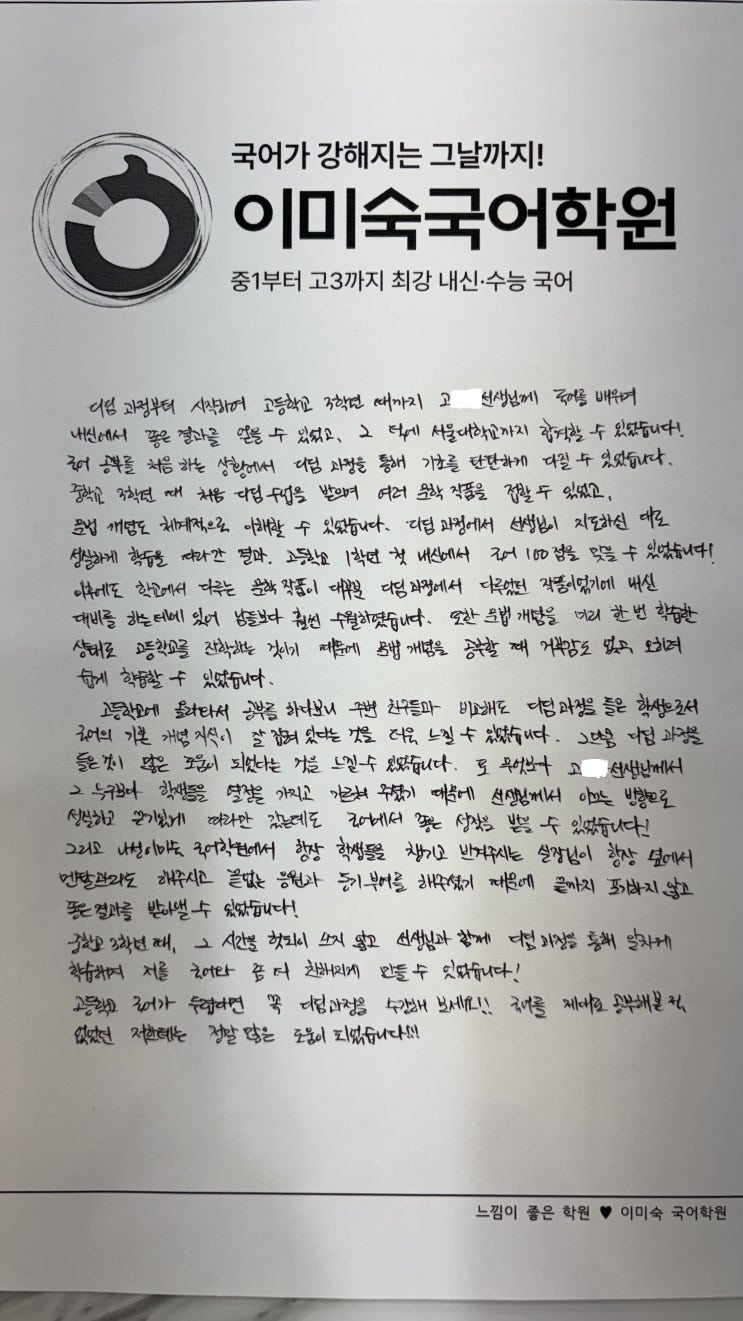 국어가 강해지는 그날까지!
이미숙국어학원
중1부터 고3까지 최강 내신·수능 국어
디딤 과정부터 시작하여 고등학교 3학년 때까지 고 선생님께 국어를 배우며
내신에서 좋은 결과를 얻을 수 있었고, 그 덕에 서울대학교까지 합격할 수 있었습니다!
국어 공부를 처음 하는 상황에서 디딤 과정을 통해 기초를 탄탄하게 다질 수 있었습니다.
중학교 3학년 때 처음 디딤 수업을 받으며 여러 문학 작품을 접할 수 있었고,
문법 개념도 체계적으로 이해할 수 있었습니다. 디딤 과정에서 선생님이 지도하신 대로
성실하게 학습을 따라간 결과, 고등학교 1학년 첫 내신에서 국어 100점을 맞을 수 있었습니다!
이후에도 학교에서 다루는 문학 작품이 대부분 디딤 과정에서 다루었던 작품이었기에 내신
대비를 하는데에 있어 남들보다 훨씬 수월하였습니다. 또한 문법 개념을 미리 한 번 학습한
상태로 고등학교를 진학하는 것이기 때문에 문법 개념을 공부할 때 거북감도 없고 오히려
쉽게 학습할 수 있었습니다.
고등학교에 올라타서 공부를 하다보니 주변 친구들과 비교해도 디딤 과정을 들은 학생으로서
국어의 기본 개념 지식이 잘 잡혀 있다는 것을 더욱 느낄 수 있었습니다. 그만큼 디딤 과정을
들은 것이 많은 도움이 되었다는 것을 느낄 수 있었습니다. 또 무엇보다 고 선생님께서
그 누구보다 학생들을 열정을 가지고 가르쳐 주셨기 때문에 선생님께서 이끄는 방향으로
성실하고 끈기있게 따라만 갔는데도 국어에서 좋은 성적을 받을 수 있었습니다!
그리고 나선 이미숙 국어학원에서 항상 학생들을 챙기고 반겨주시는 실장님이 항상 옆에서
멘탈관리도 해주시고 끝없는 응원과 동기부여를 해주셨기 때문에 끝까지 포기하지 않고
좋은 결과를 받아낼 수 있었습니다!
중학교 3학년 때, 그 시간을 헛되이 쓰지 않고 선생님과 함께 디딤 과정을 통해 알차게
학습하며 저를 국어와 좀 더 친해지게 만들 수 있었습니다!
고등학교 국어가 두렵다면 꼭 디딤 과정을 수강해 보세요!! 국어를 제대로 공부해본 적
없었던 저한테는 정말 많은 도움이 되었습니다!!!
느낌이 좋은 학원 ♥ 이미숙 국어학원